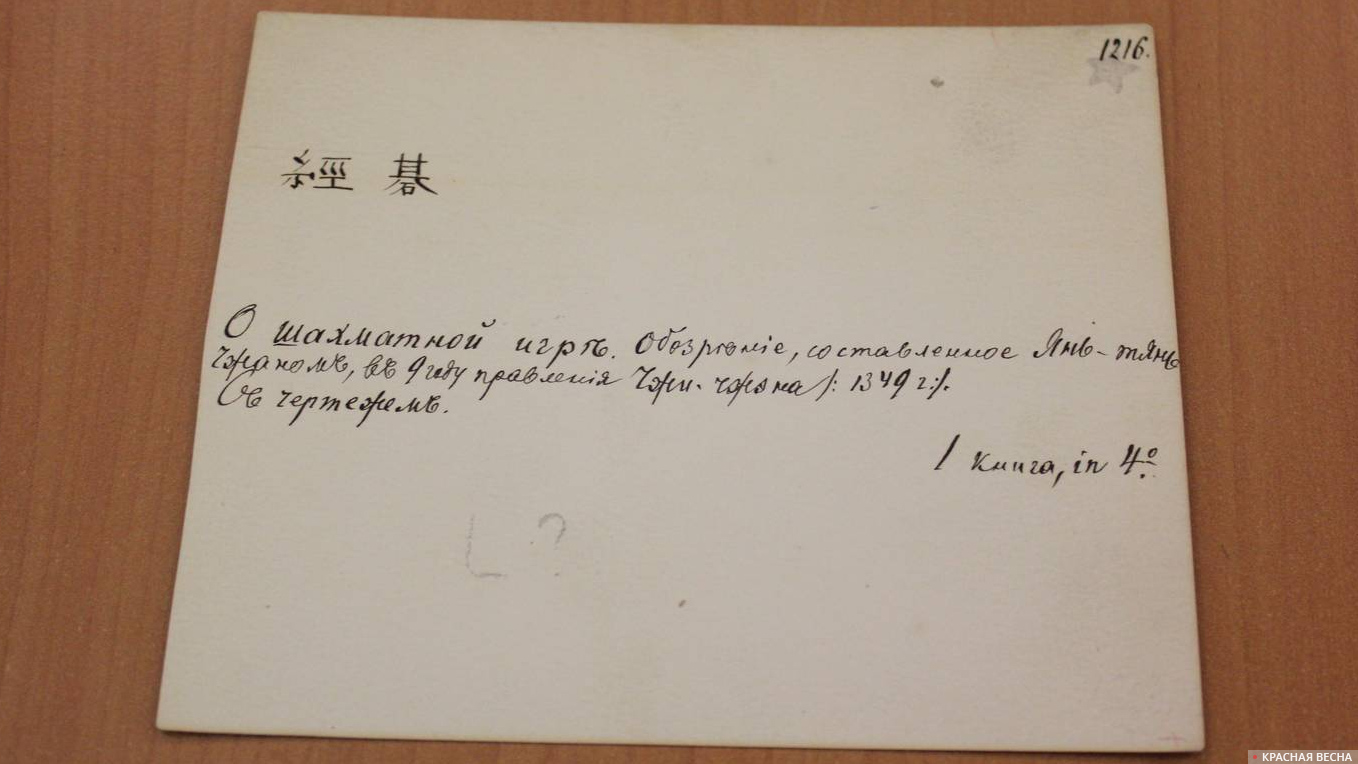 1216.
經 碁
О шахматной игрѣ. Обозрѣніе, составленное Янь-тянь-
чжаномъ, въ 9 году правленія Чжи-чжэна /: 1349 г:/.
Съ чертежемъ.
1 книга, in 4º.
L ?
КРАСНАЯ ВЕСНА